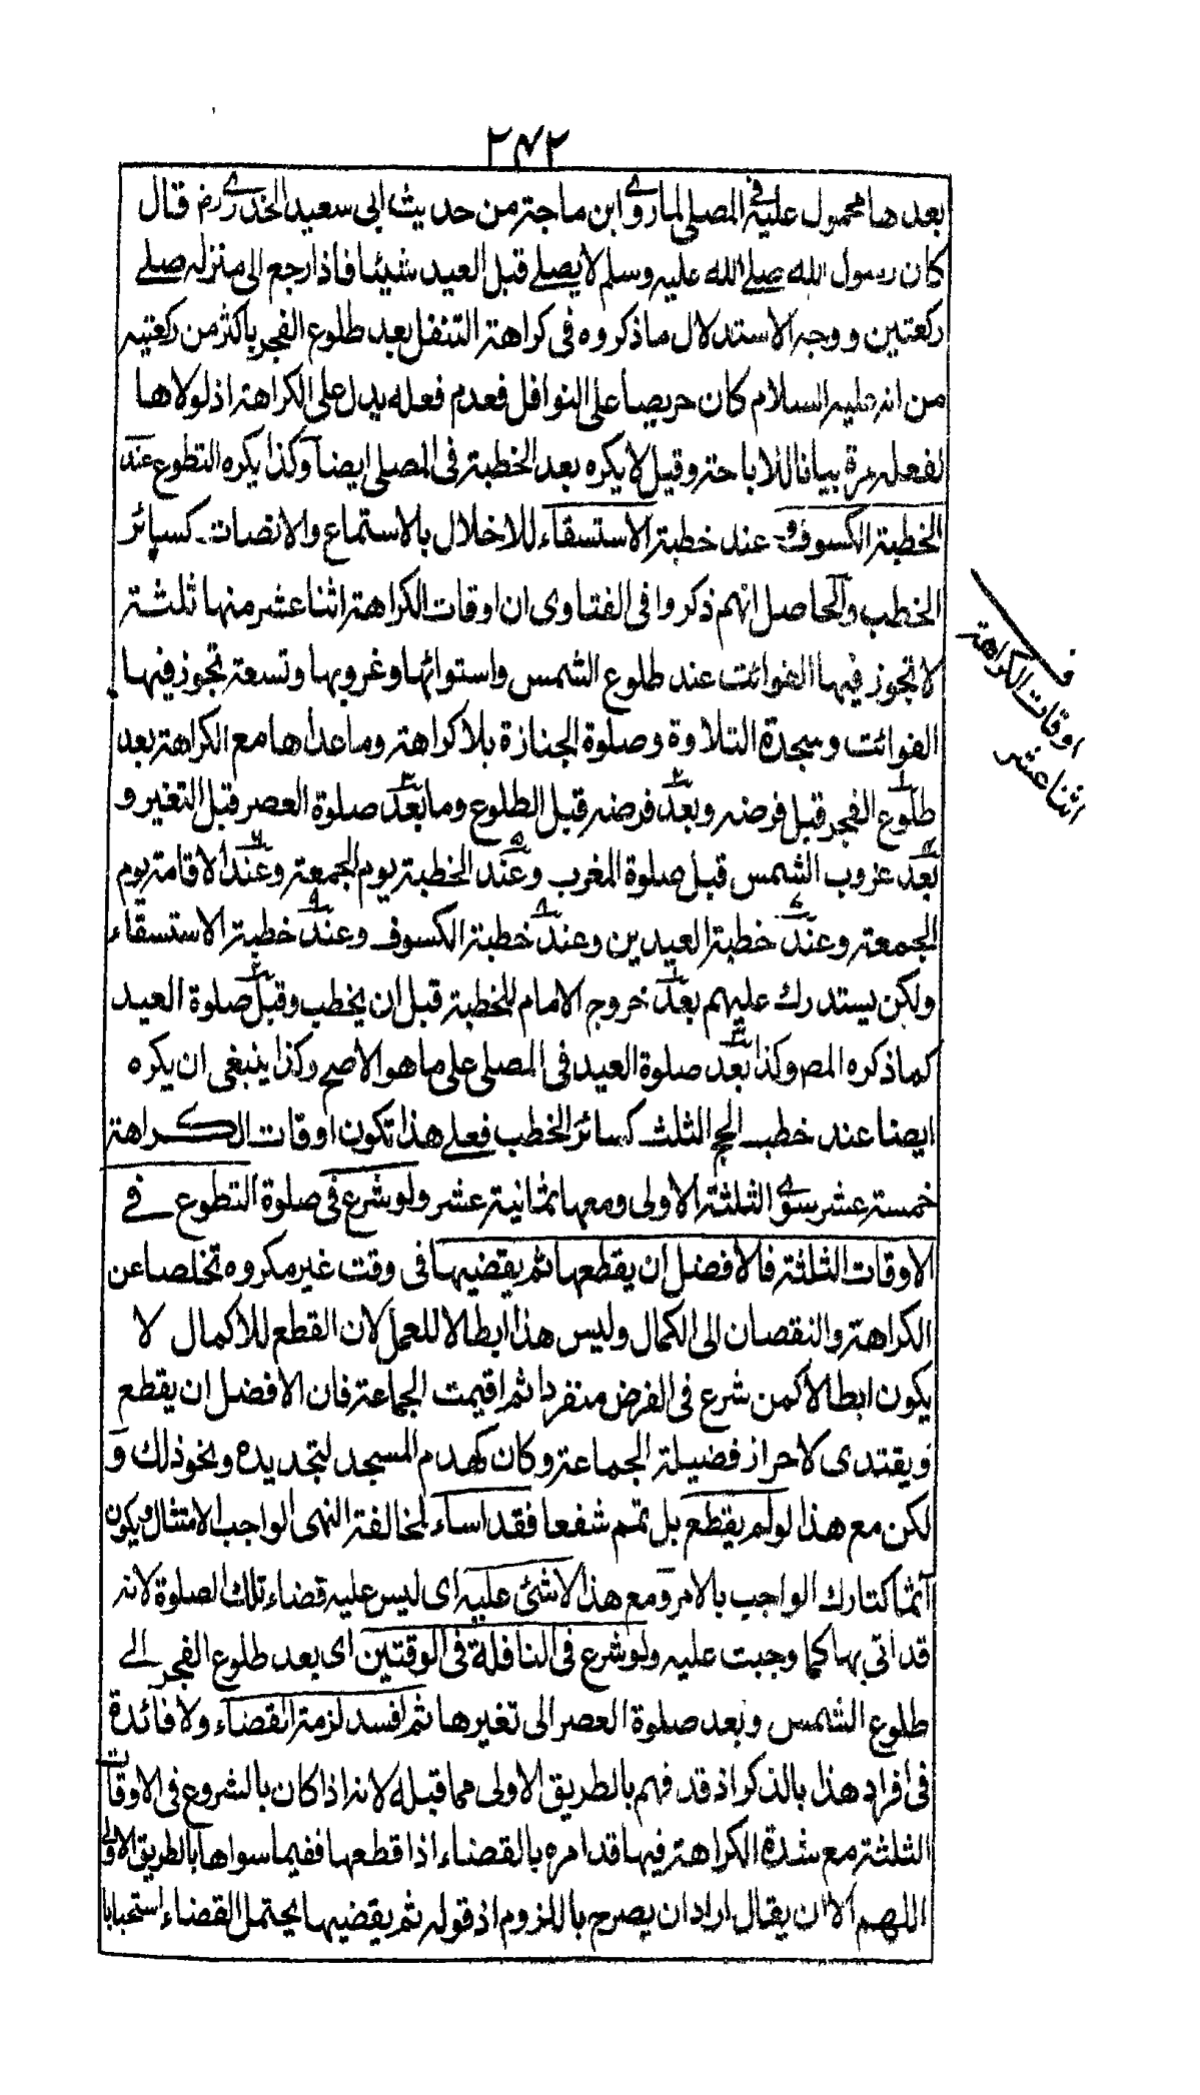 ٢٤٢
بعدها محمول عليه فى المصلى لما روى ابن ماجة من حديث ابى سعيد الخدرى رضـ قال
كان رسول الله صلے الله عليه وسلم لا يصلے قبل العيد شيئا فاذا رجع الى منزله صلے
ركعتين ووجه الاستدلال ما ذكروه فى كراهة التنفل بعد طلوع الفجر باكثر من ركعتيه
من انه عليه السلام كان حريصا على النوافل فعدم فعله يدل على الكراهة اذ لولاها
لفعله مرة بيانا للاباحة وقيل لا يكره بعد الخطبة فى المصلى ايضا وكذا يكره التطوع عند
الخطبة الكسوف و عند خطبة الاستسقاء للاخلال بالاستماع والانصات كسائر
الخطب والحاصل انهم ذكروا فى الفتاوى ان اوقات الكراهة اثنا عشر منها ثلثة
لا تجوز فيها الفوائت عند طلوع الشمس واستوائها وغروبها وتسعة تجوز فيها
الفوائت وسجدة التلاوة وصلوة الجنازة بلا كراهة وما عداها مع الكراهة بعد
طلوع الفجر قبل فرضه وبعد فرضه قبل الطلوع وما بعد صلوة العصر قبل التغير و
بعد غروب الشمس قبل صلوة المغرب وعند الخطبة يوم الجمعة وعند الاقامة يوم
الجمعة وعند خطبة العيدين وعند خطبة الكسوف وعند خطبة الاستسقاء
ولكن يستدرك عليهم بعد خروج الامام للخطبة قبل ان يخطب وقبل صلوة العيد
كما ذكره المصـ وكذا بعد صلوة العيد فى المصلى على ما هو الاصح وكذا ينبغى ان يكره
ايضا عند خطب الحج الثلث كسائر الخطب فعلے هذا تكون اوقات الكراهة
خمسة عشر سوى الثلثة الاولى ومعها ثمانية عشر ولو شرع فى صلوة التطوع فے
الاوقات الثلثة فالافضل ان يقطعها ثم يقضيها فى وقت غير مكروه تخلصا عن
الكراهة والنقصان الى الكمال وليس هذا ابطالا للعمل لان القطع للاكمال لا
يكون ابطالا كمن شرع فى الفرض منفردا ثم اقيمت الجماعة فان الافضل ان يقطع
ويقتدى لاحراز فضيلة الجماعة وكان كهدم المسجد لتجديده ونحو ذلك و
لكن مع هذا لو لم يقطع بل تمم شفعا فقد اساء لمخالفة النهى الواجب الامتثال ويكون
آثما كتارك الواجب بالامر ومع هذا لا شئ عليه اى ليس عليه قضاء تلك الصلوة لانه
قد اتى بها كما وجبت عليه ولو شرع فى النافلة فى الوقتين اى بعد طلوع الفجر الے
طلوع الشمس وبعد صلوة العصر الى تغيرها ثم افسد لزمه القضاء ولا فائدة
فى افراد هذا بالذكر اذ قد فهم بالطريق الاولى مما قبله لانه اذا كان بالشروع فى الاوقات
الثلثة مع شدة الكراهة فيها قد امره بالقضاء اذا قطعها ففيما سواها بالطريق الاولى
اللهم الا ان يقال اراد ان يصرح باللزوم اذ قوله ثم يقضيها يحتمل القضاء استحبابا
فـ
اوقات الكراهة
اثنا عشر